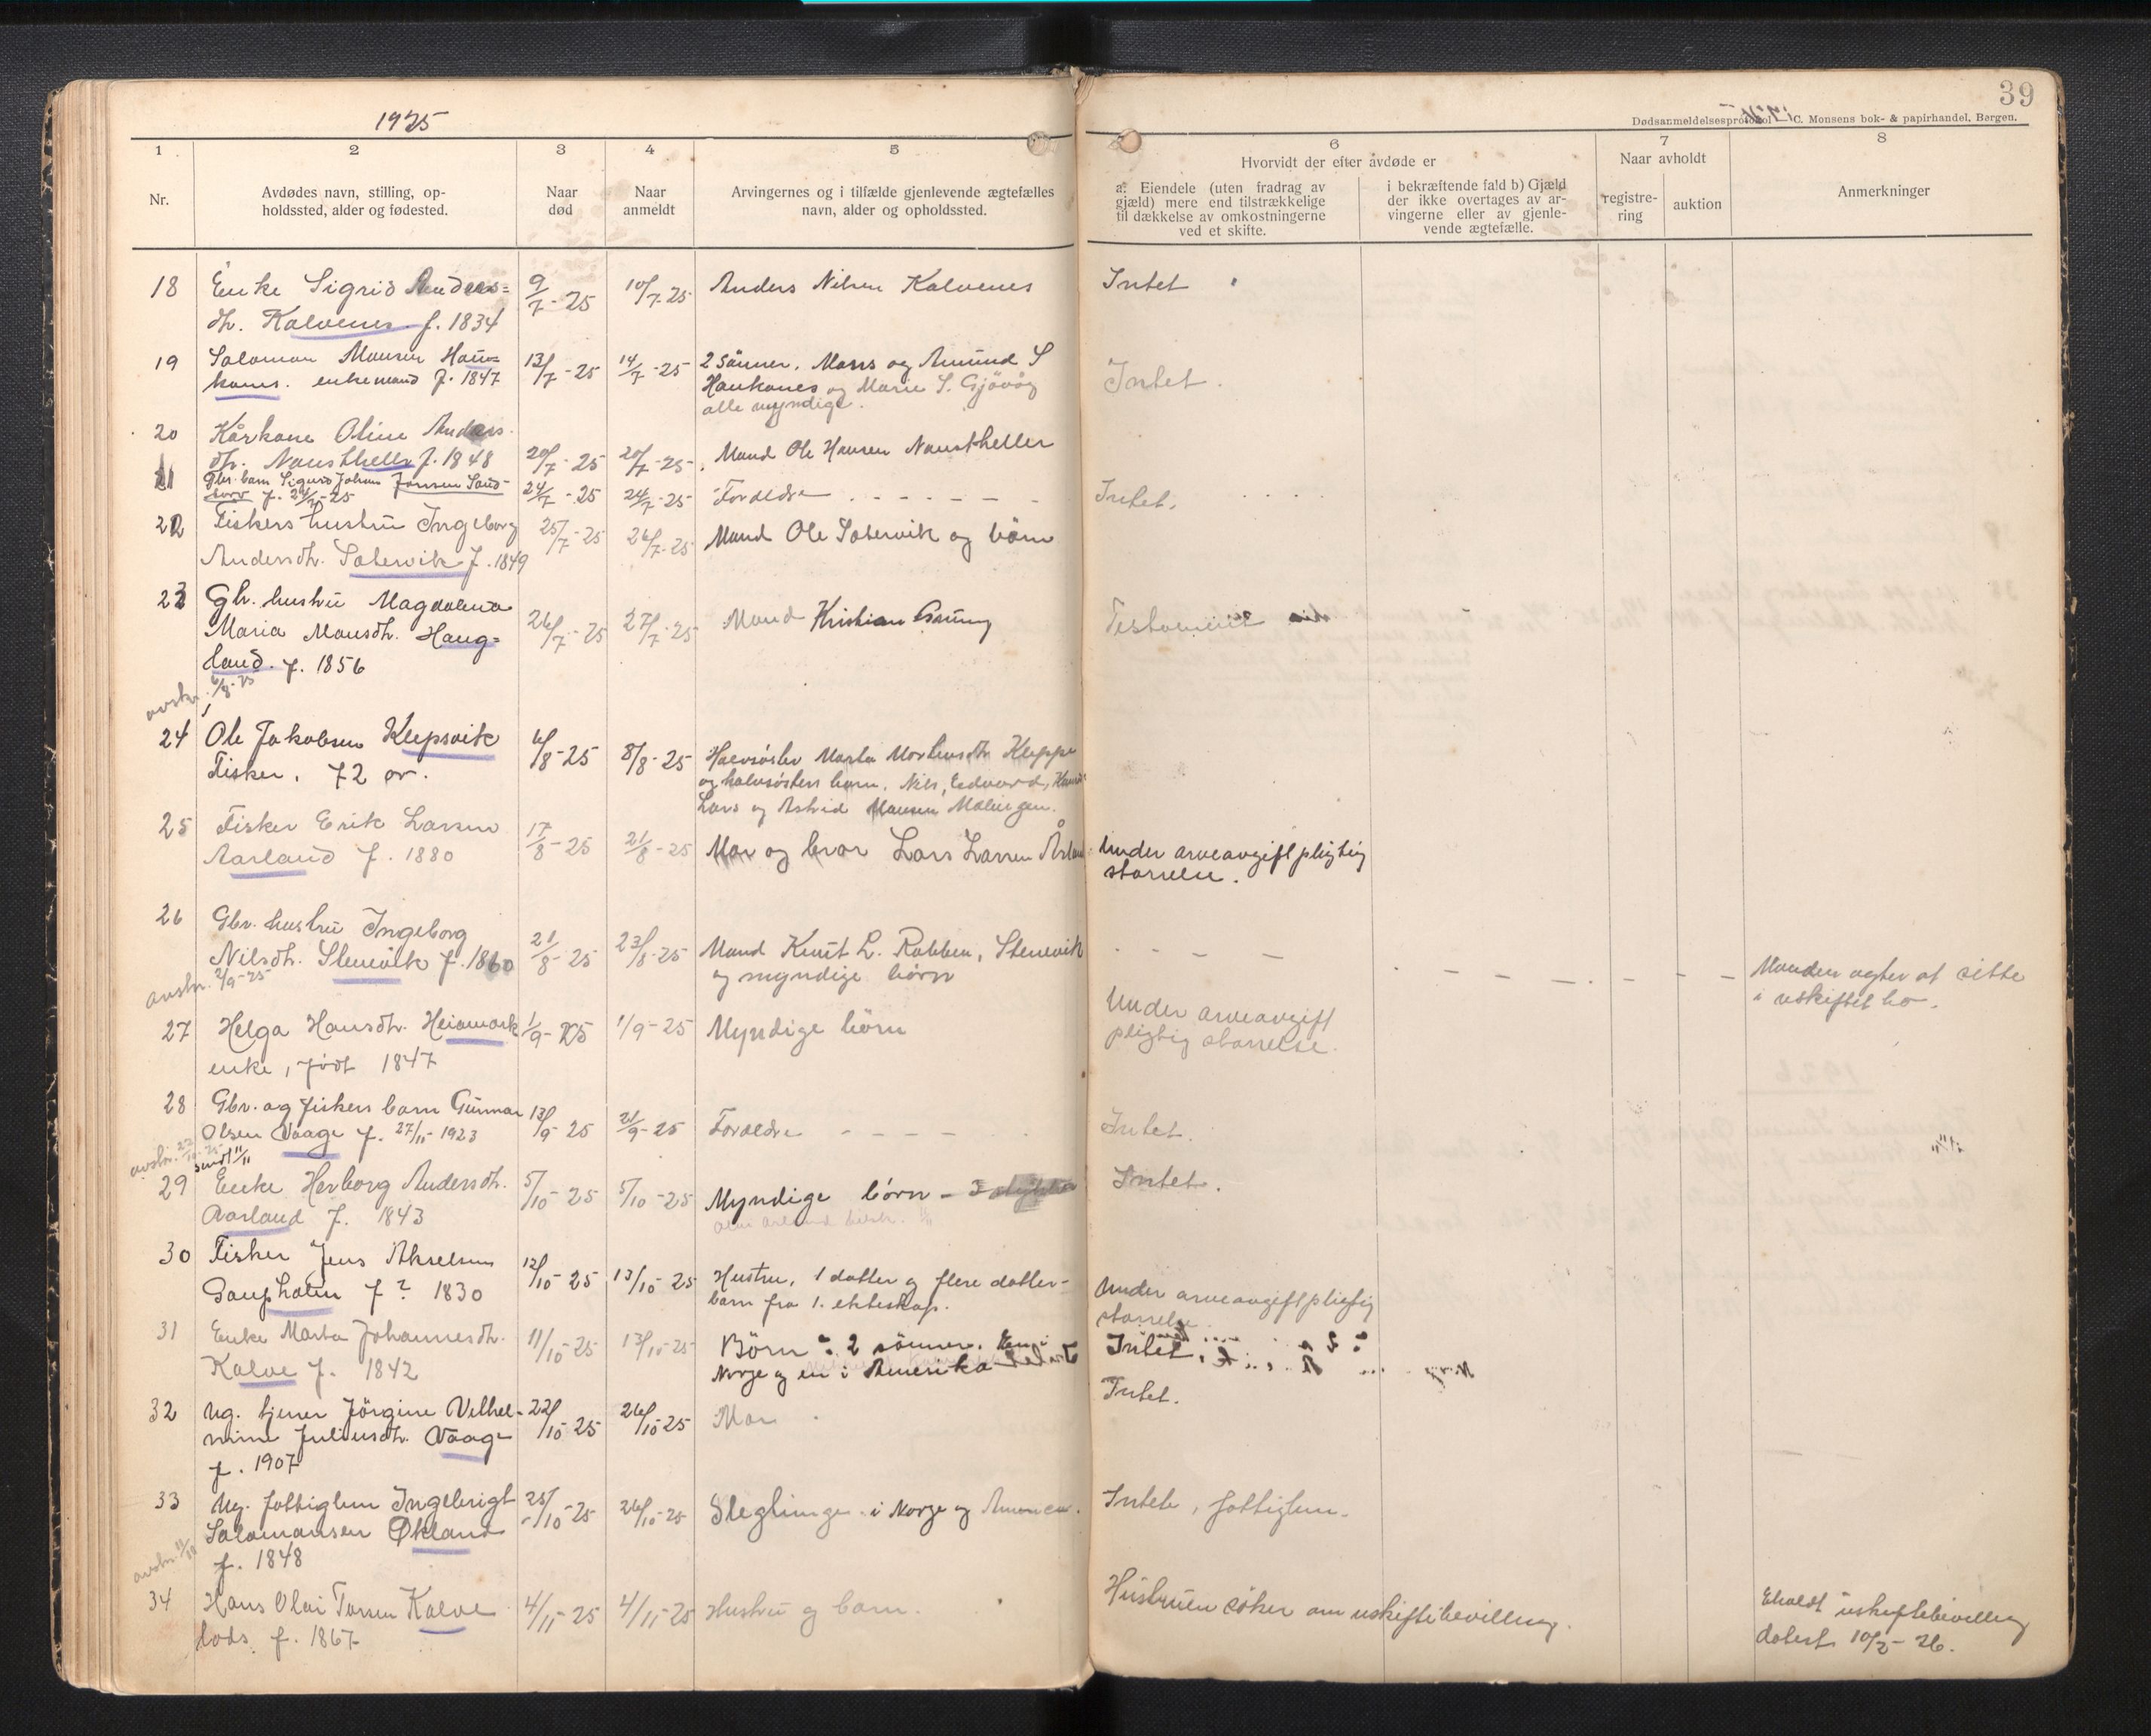 1925
39
Dødsanmeldelsesprotokol C. Monsens bok- & papirhandel, Bergen.
1 2 3 4 5 6 7 8
Nr.
Avdødes navn, stilling, op-
holdssted, alder og fødested.
Naar
død
Naar
anmeldt
Arvingernes og i tilfælde gjenlevende ægtefælles
navn, alder og opholdssted.
Hvorvidt der efter avdøde er
a. Eiendele (uten fradrag av
gjæld) mere end tilstrækkelige
til dækkelse av omkostningerne
ved et skifte.
i bekræftende fald b) Gjæld
der ikke overtages av ar-
vingerne eller av gjenle-
vende ægtefælle.
Naar avholdt
registre-
ring
auktion
Anmerkninger
18 Enke Sigrid Anders= 9/7-25 10/7-25 Anders Nilsen Kalvenes Intet
dh. Kalvenes f. 1834
19 Salomon Monsen Hau= 13/7-25 14/7-25 2 Sönner. Mons og Amund S
kanes. enkemand f. 1847 Haukanes og Marie S. Gjövåg Intet.
alle myndige.
20 Kårkone Oline Anders
dh. Naustheller f. 1848 20/7-25 20/7-25. Mand Ole Hansen Naustheller
21 Gbr. barn Sigurd Johan Jansen Sand-
torv f. 24/2-25 24/7-25 24/7-25 Foreldre Intet.
22 Fiskers hustru Ingeborg 25/7-25 26/7-25 Mand Ole Sætervik og börn
Andersdh. Sætervik f. 1849
23 Gbr. hustru Magdalena
Maria Monsdh. Haug= 26/7-25 27/7-25 Mand Kristian Testament
land. f. 1856
avskr. 6/8-25
24 Ole Jakobsen Klepsvik 6/8-25 8/8-25 Halvsöster Marta Mortensdh Kleppe
Fisker. 72 år. og halvsösters barn. Nils, Edvard,
Lars og Astrid Hansen Mælingen.
25 Fisker Erik Larsen 17/8-25 21/8-25 Mor og bror Lars Larsen Under arveavgift pligtig
Aarland f. 1880 störrelse.
26 Gbr. hustru Ingeborg
Nilsdh. Stenevik f. 1860 21/8-25 23/8-25 Mand Knut L. Rabben, Stenevik Manden agter at sitte
og myndige börn i uskiftet bo.
avskr. 2/9-25
27 Helga Hansdh. Heiamark 1/9-25 1/9-25 Myndige börn Under arveavgift
enke, född 1847 pligtig störrelse.
28 Gbr. og fiskers barn Gunnar 13/9-25 21/9-25 Foreldre Intet.
Olsen Vaage f. 27/11-1923
avskr. 22/10-25
sendt 11/11
29 Enke Herborg Andersdh. 5/10-25 5/10-25 Myndige börn - Intet.
Aarland f. 1843
30 Fisker Jens Akselsen 12/10-25 13/10-25 Hustru, 1 datter og flere datter- Under arveavgift pligtig
Gaupholm f? 1830 barn fra 1. ekteskap. störrelse.
31 Enke Marta Johannesdh. 11/10-25 13/10-25 Börn: 2 sönner. En i Intet.
Kalve f. 1842 Norge og en i Amerika
32 Ug. tjener Jörgine Vilhel- 22/10-25 26/10-25 Mor Intet.
mine Juliusdh. Vaage
f. 1907
33 Ug. fattiglem Ingebrigt 25/10-25 26/10-25 Slegtinge i Norge og Intet, fattiglem.
Salamonsen Økland
f. 1848
avskr.
34 Hans Olai Tassen Kalve 4/11-25 4/11-25 Hustru og barn. Hustruen söker om uskiftebevilling. Eholdt uskiftebevilling
lods f. 1867 datert 10/2-26.